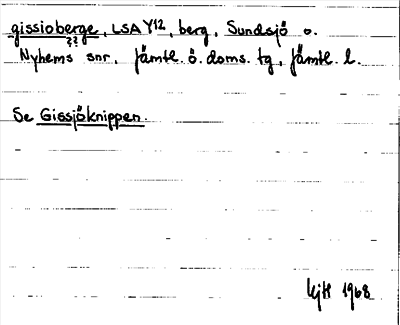 gissioberge, LSA Y12, berg, Sundsjö o.
??
Nyhems snr, Jämtl. ö. doms. tg, Jämtl. l.
Se Gissjöknippen.
1968